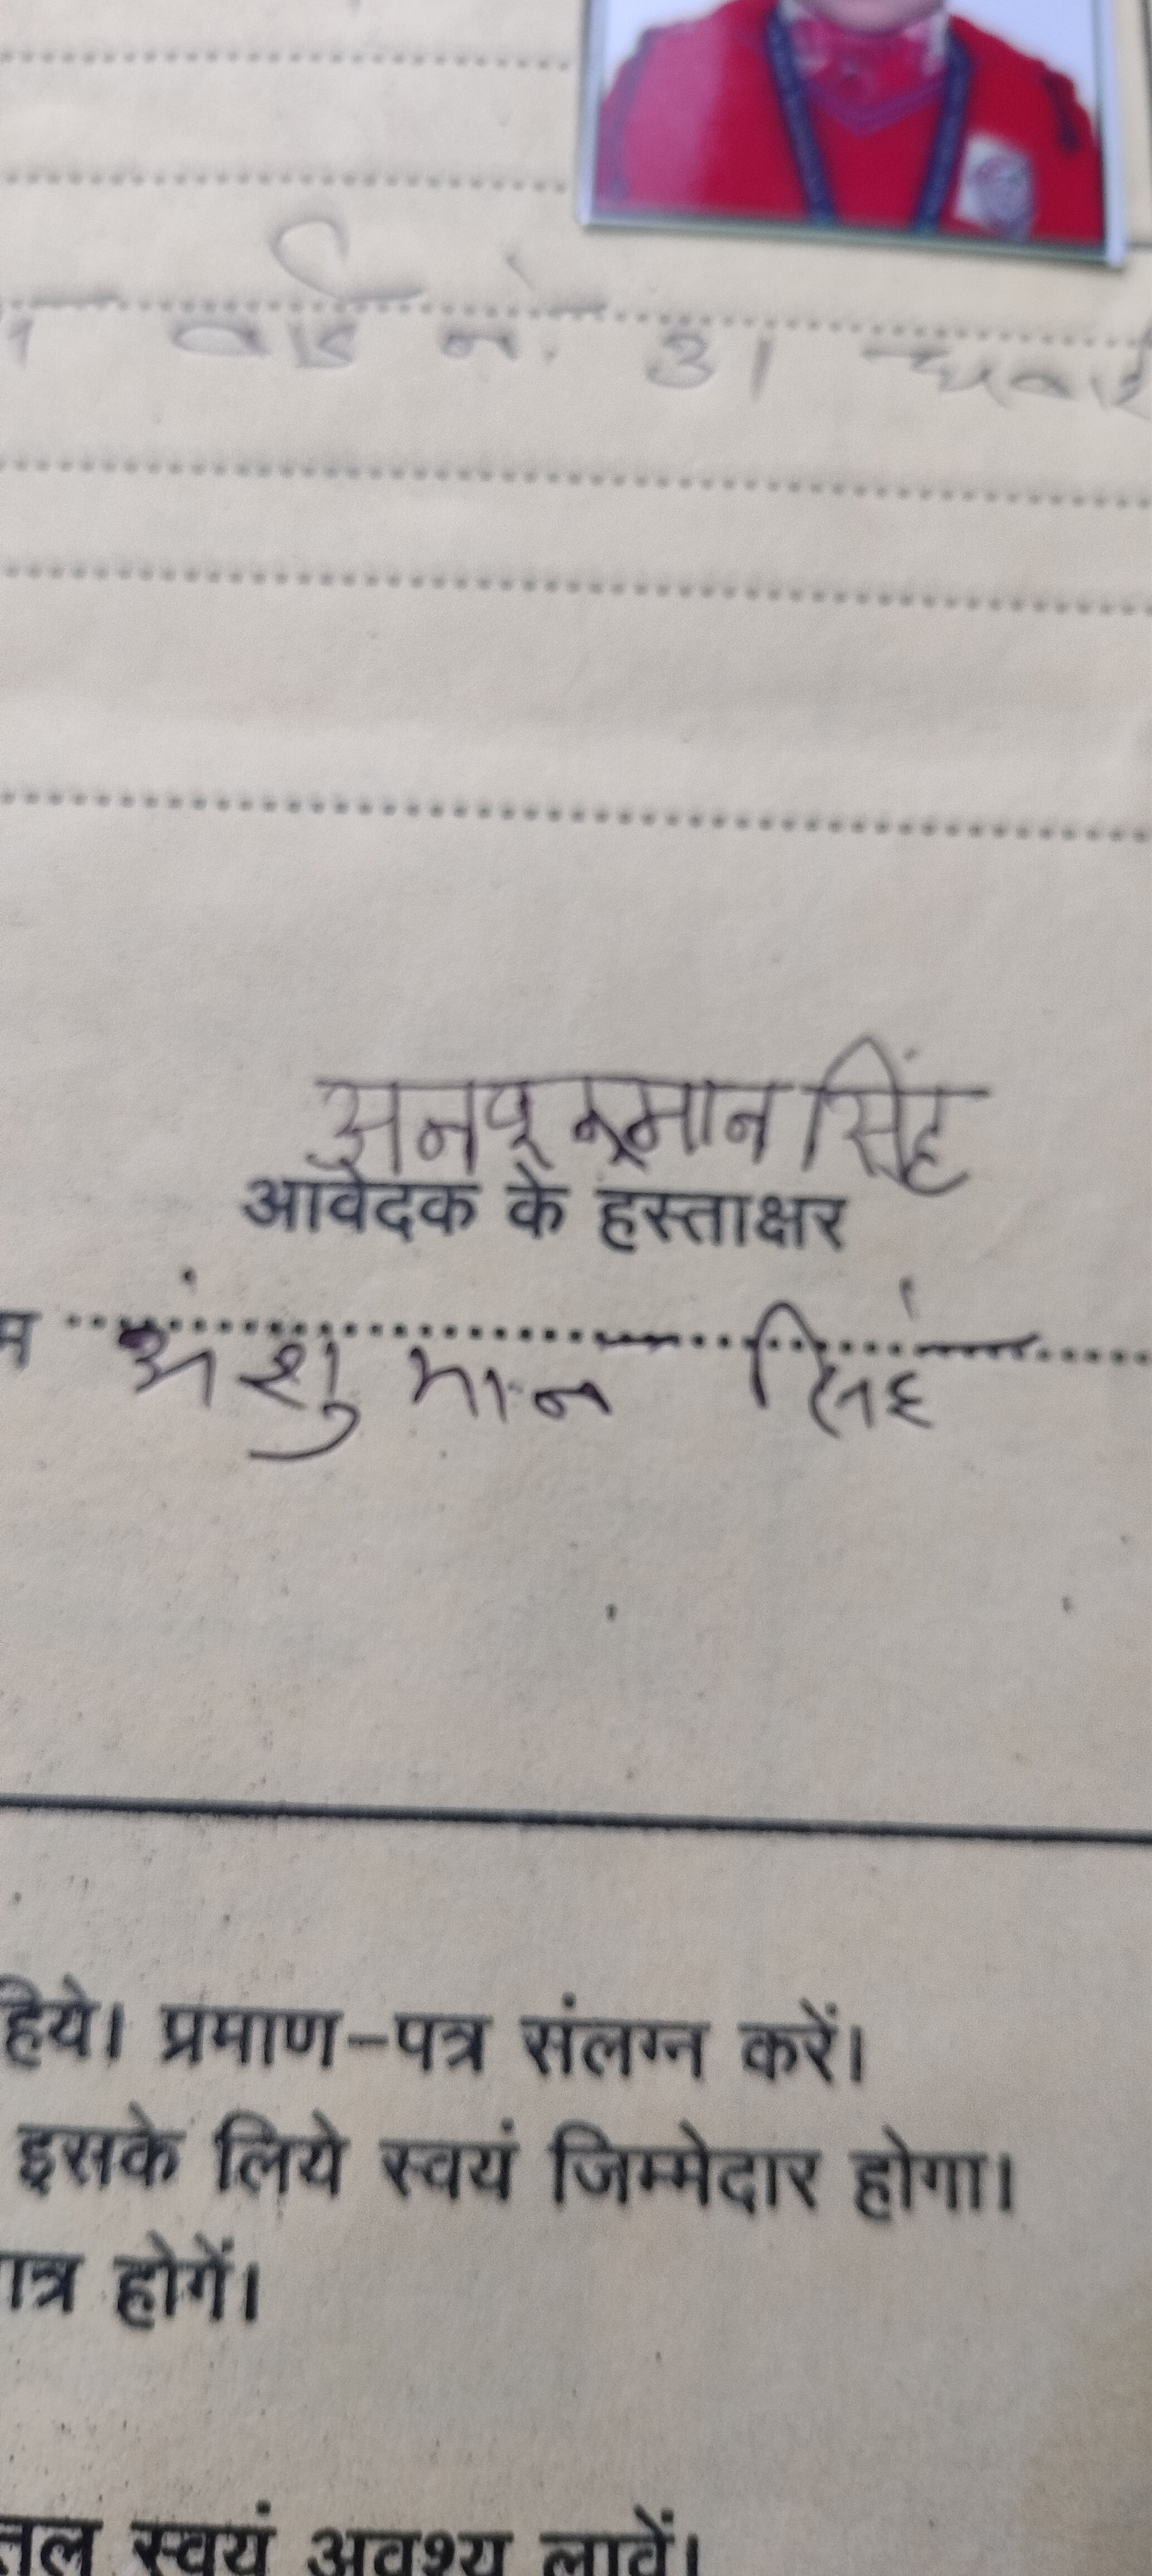 वार्ड नं. 31
सिंह
आवेदक के हस्ताक्षर
म अंशु मान सिंह
हिये। प्रमाण-पत्र संलग्न करें।
इसके लिये स्वयं जिम्मेदार होगा।
ात्र होगें।
तल स्वयं अवश्य लावें।